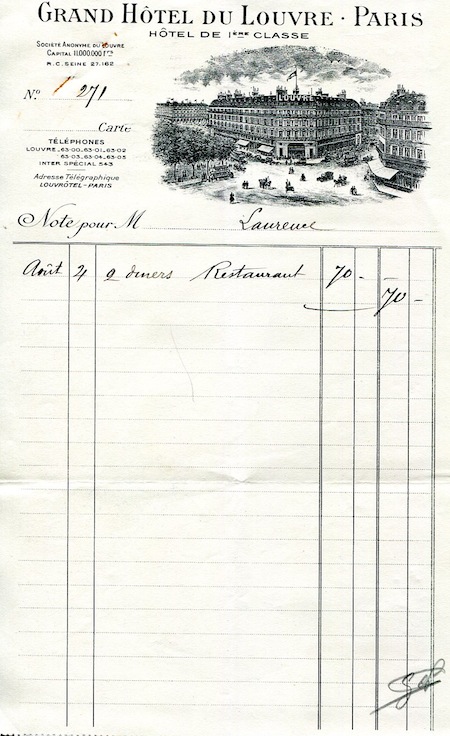 GRAND HÔTEL DU LOUVRE · PARIS
HÔTEL DE 1ÈRE CLASSE
SOCIÉTÉ ANONYME DU LOUVRE
CAPITAL 11.000.000 Fcs
R.C. SEINE 27.162
No. 271
Carte
TÉLÉPHONES
LOUVRE_63-00_63-01_63-02
63-03_63-04_63-05
INTER SPÉCIAL 543
Adresse Télégraphique
LOUVRÔTEL-PARIS
LOUVRE
Note pour M Laurence
Août 4 2 diners Restaurant 70 -
70 -